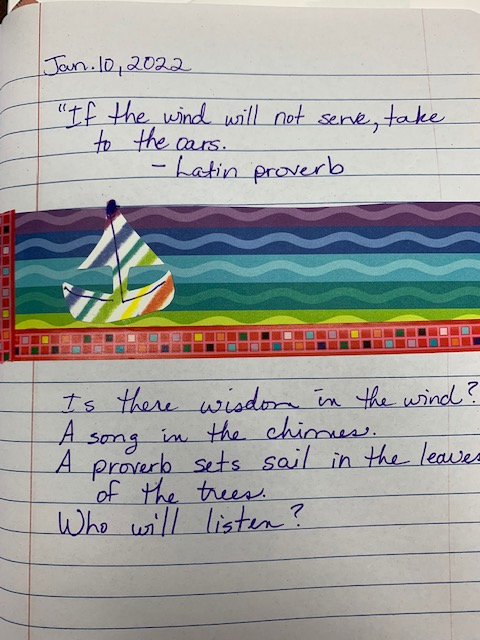 Jan. 10, 2022
"If the wind will not serve, take
to the oars.
- Latin proverb
Is there wisdom in the wind?
A song in the chimes.
A proverb sets sail in the leaves
of the trees.
Who will listen?